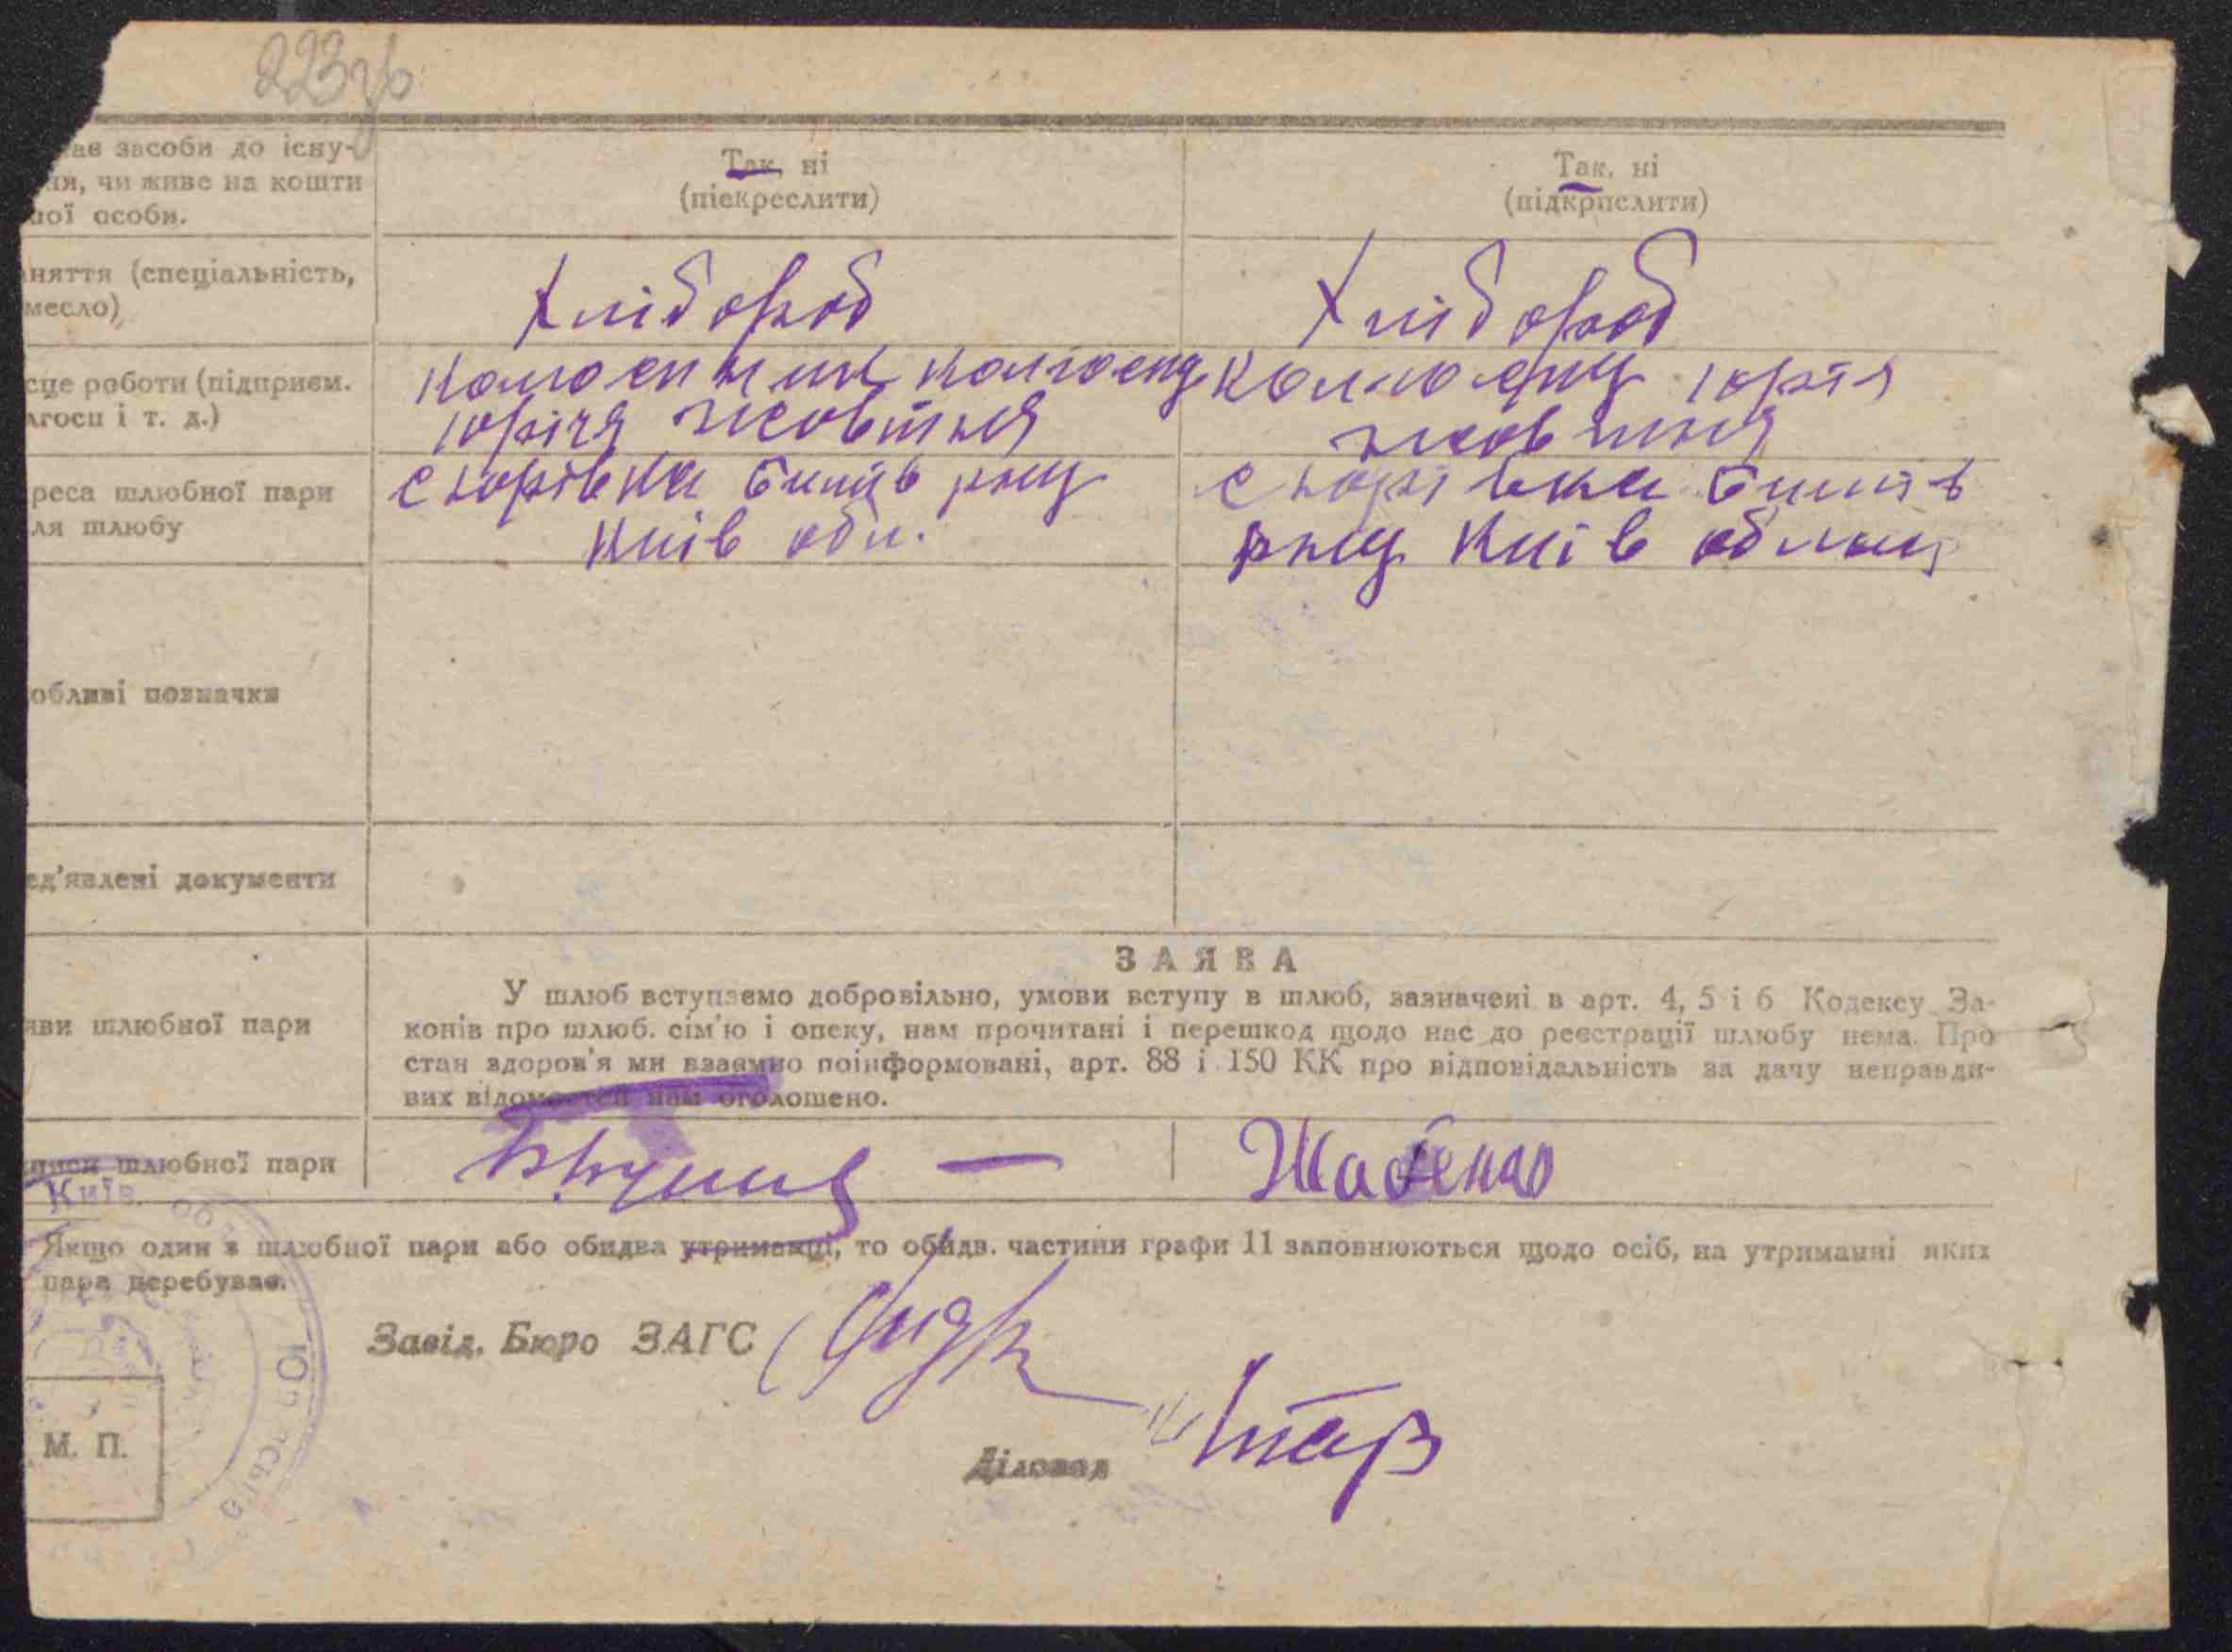 223 зв
ає засоби до існу-
ня, чи живе на кошти
ної особи.
Так, ні
(піекреслити)
Так, ні
(підкрислити)
няття (спеціальність,
месло)
Хлібороб
Хлібороб
сце роботи (підприєм.
лгосп і т. д.)
колгоспник колгоспу
юріча жовтня
колгоспу юрія
жовтня
реса шлюбної пари
ля шлюбу
с Юрівка Бишів рну
Київ обл.
с Юрівка Бишів
рну Київ област
обливі позначки
ед'явлені документи
ЗАЯВА
яви шлюбної пари
У шлюб вступаємо добровільно, умови вступу в шлюб, зазначені в арт. 4, 5 і 6 Кодексу За-
конів про шлюб. сім'ю і опеку, нам прочитані і перешкод щодо нас до реєстрації шлюбу нема. Про
стан здоров'я ми взаємно поінформовані, арт. 88 і 150 КК про відповідальність за дачу неправди-
вих відомостей нам оголошено.
писи шлюбної пари
Жабенко
Київ. обл
Якщо один з шлюбної пари або обидва утриманці, то обидв. частини графи 11 заповнюються щодо осіб, на утриманні яких
пара перебуває.
Завід. Бюро ЗАГС
М. П.
Діловод